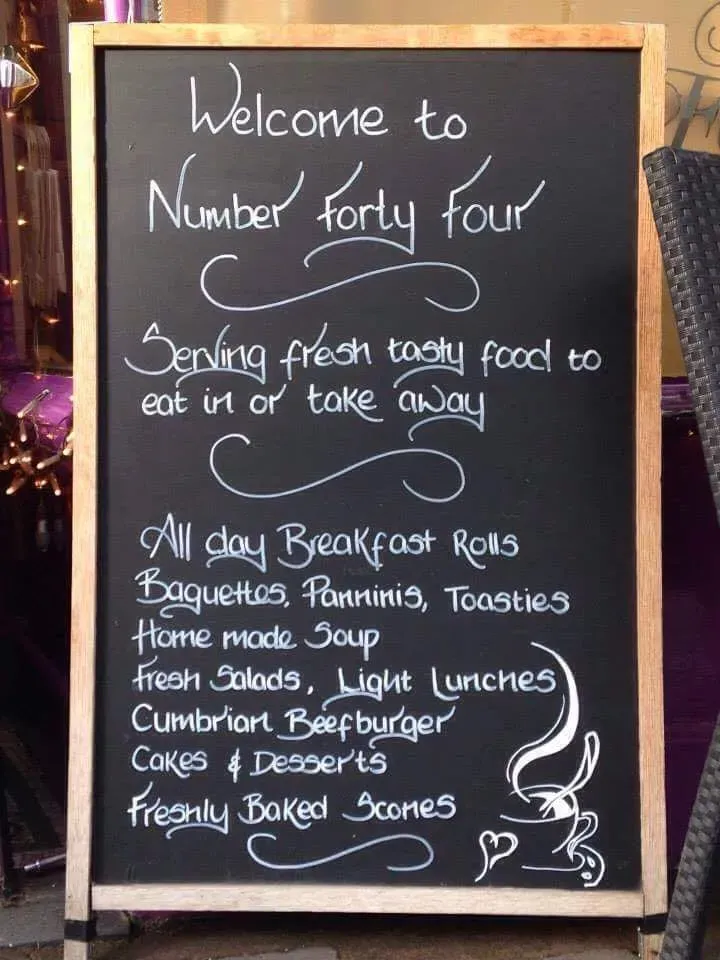 Welcome to
Number Forty Four
Serving fresh tasty food to
eat in or take away
All day Breakfast Rolls
Baguettes, Panninis, Toasties
Home made Soup
Fresh Salads, Light Lunches
Cumbrian Beefburger
Cakes & Desserts
Freshly Baked Scones